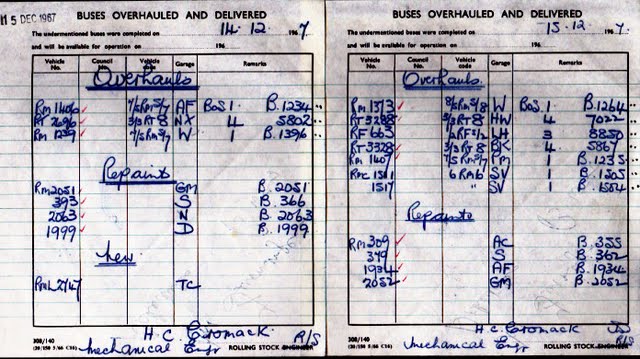 15 DEC 1967
BUSES OVERHAULED AND DELIVERED
The undermentioned buses were completed on 14. 12. 196 7
and will be available for operation on 196
Vehicle No. Council No. Vehicle code Garage Remarks
Overhauls
AF BOS 1. B. 1234 "
RT 2696 3/3 RT 8 NX 4 5802 "
RM 1239 W 1 B. 1396 "
Repaint
RM 2051 GM B. 2051
393 S B. 366
2063 N B. 2063
1999 D B. 1999
New
RML 2747 TC
H. C. Cromack.
308/140
Mechanical Engr R/S
ROLLING STOCK ENGINEER
BUSES OVERHAULED AND DELIVERED
The undermentioned buses were completed on 15. 12. 196 7.
and will be available for operation on 196
Vehicle No. Council No. Vehicle code Garage Remarks
Overhauls
RM 1373 W BOS 1. B. 1264 "
RT 3288 3/3 RT 8 HW 4 7022 "
RF 663 LH 3 8850
RT 3328 3/3 RT 8 BK 4 5867 "
RM 1607 PM 1 B. 1235 "
RMC 1511 6 RM 6 SV 1 B. 1505
1517 " SV 1 B. 1504
Repaints
RM 309 AC B. 355
349 S B. 362
1934 AF B. 1934
2052 GM B. 2052
H. C. Cromack
308/140
Mechanical Engr R/S
ROLLING STOCK ENGINEER